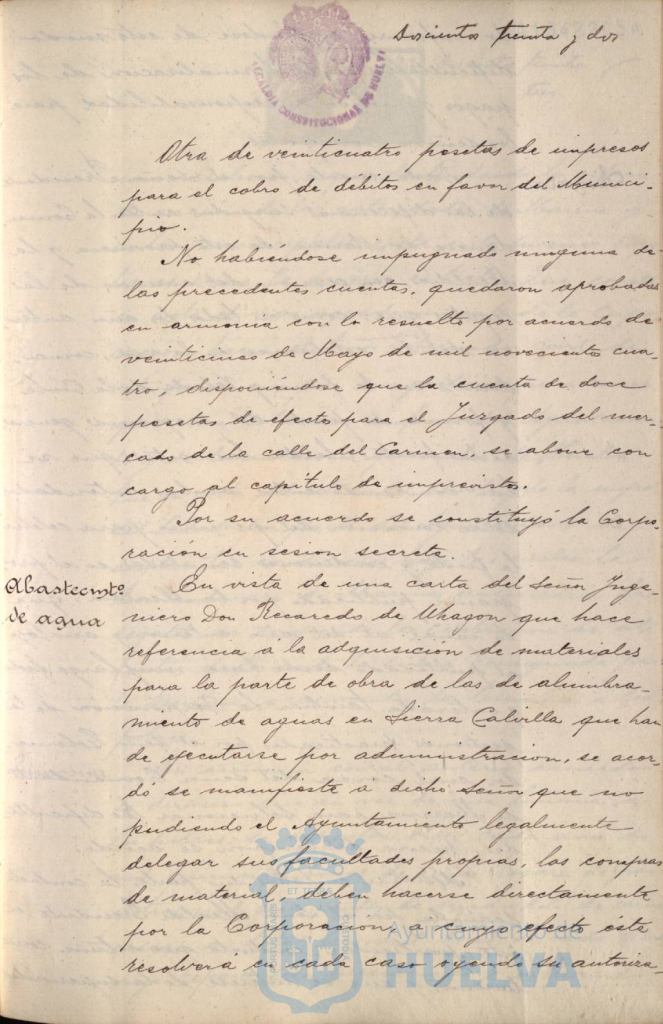 Doscientos treinta y dos
ALCALDIA CONSTITUCIONAL DE HUELVA
Otra de veinticuatro pesetas de impresos
para el cobro de débitos en favor del Munici-
pio.
No habiéndose impugnado ninguna de
las precedentes cuentas, quedaron aprobadas
en armonia con lo resuelto por acuerdo de
veinticinco de Mayo de mil novecientos cua-
tro, disponiéndose que la cuenta de doce
pesetas de efectos para el Juzgado del mer-
cado de la calle del Carmen, se abone con
cargo al capitulo de imprevistos.
Por su acuerdo se constituyó la Corpo-
ración en sesion secreta.
Abastecmto.
de agua
En vista de una carta del Señor Inge-
niero Don Recaredo de Uhagon que hace
referencia á la adquisición de materiales
para la parte de obra de las de alumbra-
miento de aguas en Sierra Calvilla que han
de ejecutarse por administración, se acor-
dó se manifieste á dicho Señor que no
pudiendo el Ayuntamiento legalmente
delegar sus facultades propias, las compras
de material, deben hacerse directamente
por la Corporación, a cuyo efecto éste
resolverá en cada caso oyendo su autoriza-
Ayuntamiento de
HUELVA